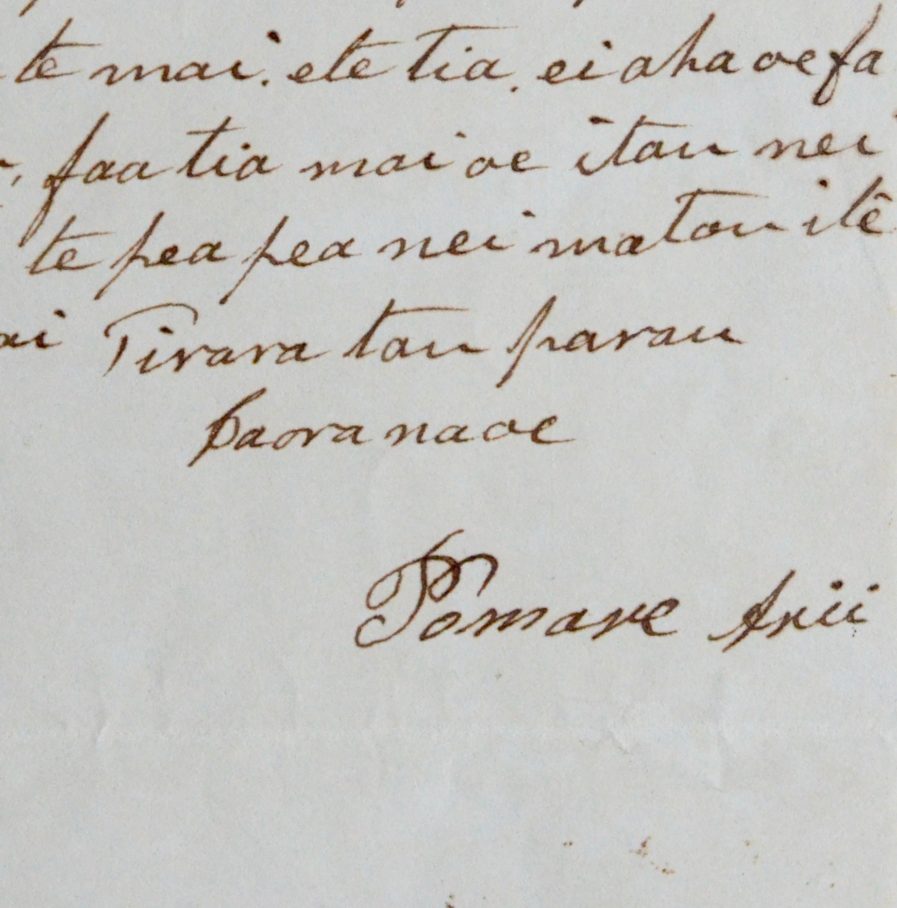 te mai. ete tia. ei aha oe fa
faa tia mai oe itau nei
te pea pea nei matou ite
ai Tirara tau parau
Iaora na oe
Pomare Arii